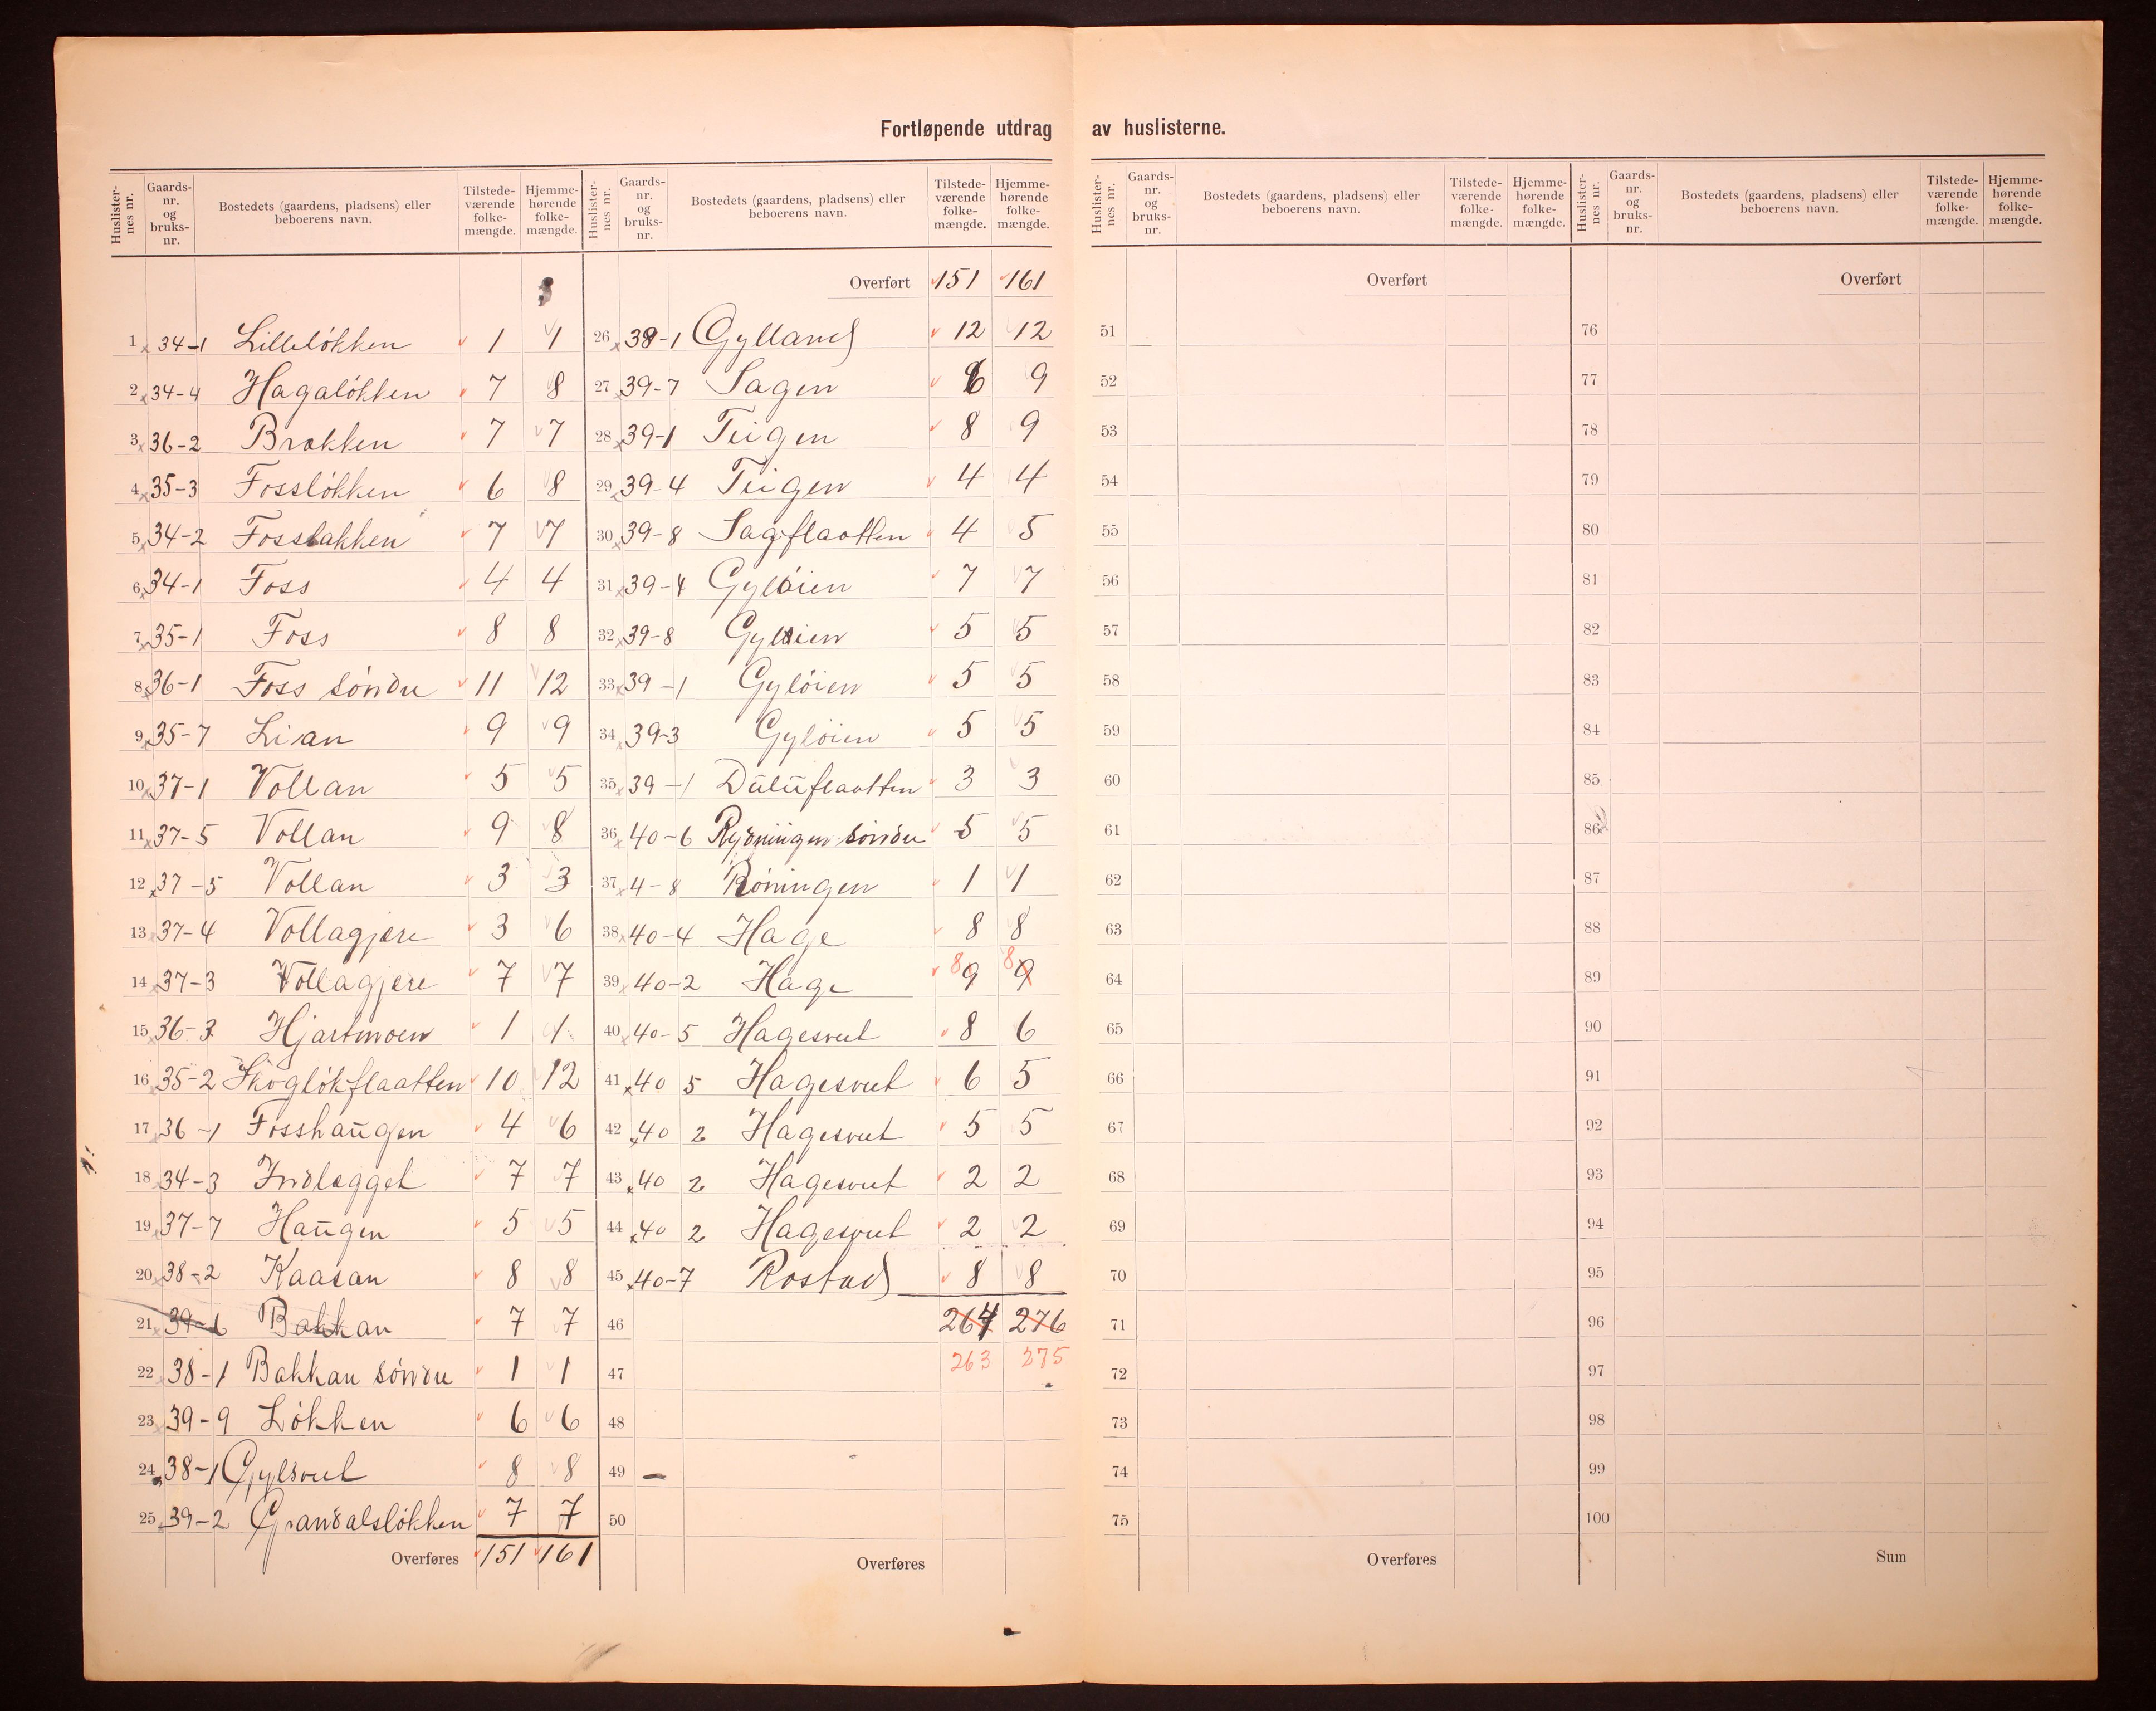 Fortløpende utdrag av huslisterne.
Huslister-nes nr. Gaards-nr. og bruks-nr. Bostedets (gaardens, pladsens) eller beboerens navn. Tilstede-værende folke-mængde. Hjemme-hørende folke-mængde.
1 34-1 Lilleløkken 1 1
2 34-4 Hagaløkken 7 8
3 36-2 Brækken 7 7
4 35-3 Fossløkken 6 8
5 34-2 Fossbakken 7 7
6 34-1 Foss 4 4
7 35-1 Foss 8 8
8 36-1 Foss söndre 11 12
9 35-7 Lian 9 9
10 37-1 Vollan 5 5
11 37-5 Vollan 9 8
12 37-5 Vollan 3 3
13 37-4 Vollagjære 3 6
14 37-3 Vollagjære 7 7
15 36-3 Hjartmoen 1 1
16 35-2 Skogløkflaatten 10 12
17 36-1 Fosshaugen 4 6
18 34-3 Indlægget 7 7
19 37-7 Haugen 5 5
20 38-2 Kaasan 8 8
21 39-6 Bakkan 7 7
22 38-1 Bakkan söndre 1 1
23 39-9 Løkken 6 6
24 38-1 Gylsvet 8 8
25 39-2 Grandalsløkken 7 7
Overføres 151 161
Huslister-nes nr. Gaards-nr. og bruks-nr. Bostedets (gaardens, pladsens) eller beboerens navn. Tilstede-værende folke-mængde. Hjemme-hørende folke-mængde.
Overført 151 161
26 39-1 Gylland 12 12
27 39-7 Sagen 6 9
28 39-1 Teigen 8 9
29 39-4 Teigen 4 4
30 39-8 Sagflaatten 4 5
31 39-4 Gyløien 7 7
32 39-8 Gyløien 5 5
33 39-1 Gyløien 5 5
34 39-3 Gyløien 5 5
35 39-1 Duluflaatten 3 3
36 40-6 Rydningen söndre 5 5
37 4-8 Röningen 1 1
38 40-4 Hage 8 8
39 40-2 Hage 8 9 8 9
40 40-5 Hagesveet 8 6
41 40 5 Hagesveet 6 5
42 40 2 Hagesveet 5 5
43 40 2 Hagesveet 2 2
44 40 2 Hagesveet 2 2
45 40-7 Rostad 8 8
46 264 276
47 263 275
48
49
50
Overføres
Huslister-nes nr. Gaards-nr. og bruks-nr. Bostedets (gaardens, pladsens) eller beboerens navn. Tilstede-værende folke-mængde. Hjemme-hørende folke-mængde.
Overført
51
52
53
54
55
56
57
58
59
60
61
62
63
64
65
66
67
68
69
70
71
72
73
74
75
Overføres
Huslister-nes nr. Gaards-nr. og bruks-nr. Bostedets (gaardens, pladsens) eller beboerens navn. Tilstede-værende folke-mængde. Hjemme-hørende folke-mængde.
Overført
76
77
78
79
80
81
82
83
84
85
86
87
88
89
90
91
92
93
94
95
96
97
98
99
100
Sum